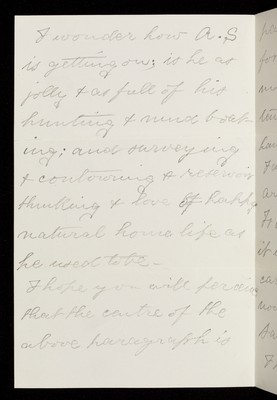 I wonder how A. S
is getting on; is he as
jolly & as full of his
hunting & mind
ing; and surveying
& contouring & reservoir
thinking & love of happy
natural home life as
he used to be –
I hope you will perceive
that the centre of the
above paragraph is